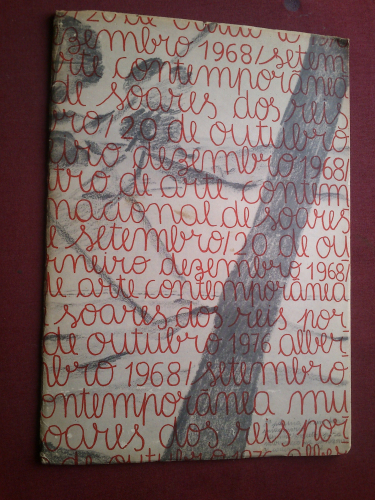 / 20 de outu
zembro 1968/setem
arte contemporânea
de soares dos reis
ro/20 de outubro
aro dezembro 1968/
tro de arte contem
nacional de soares
e setembro/20 de ou
neiro dezembro 1968/
e arte contemporânea
soares dos reis por
de outubro 1976 alber
bro 1968/ setembro
ontemporânea mu
oares dos reis por
de outubro 1976